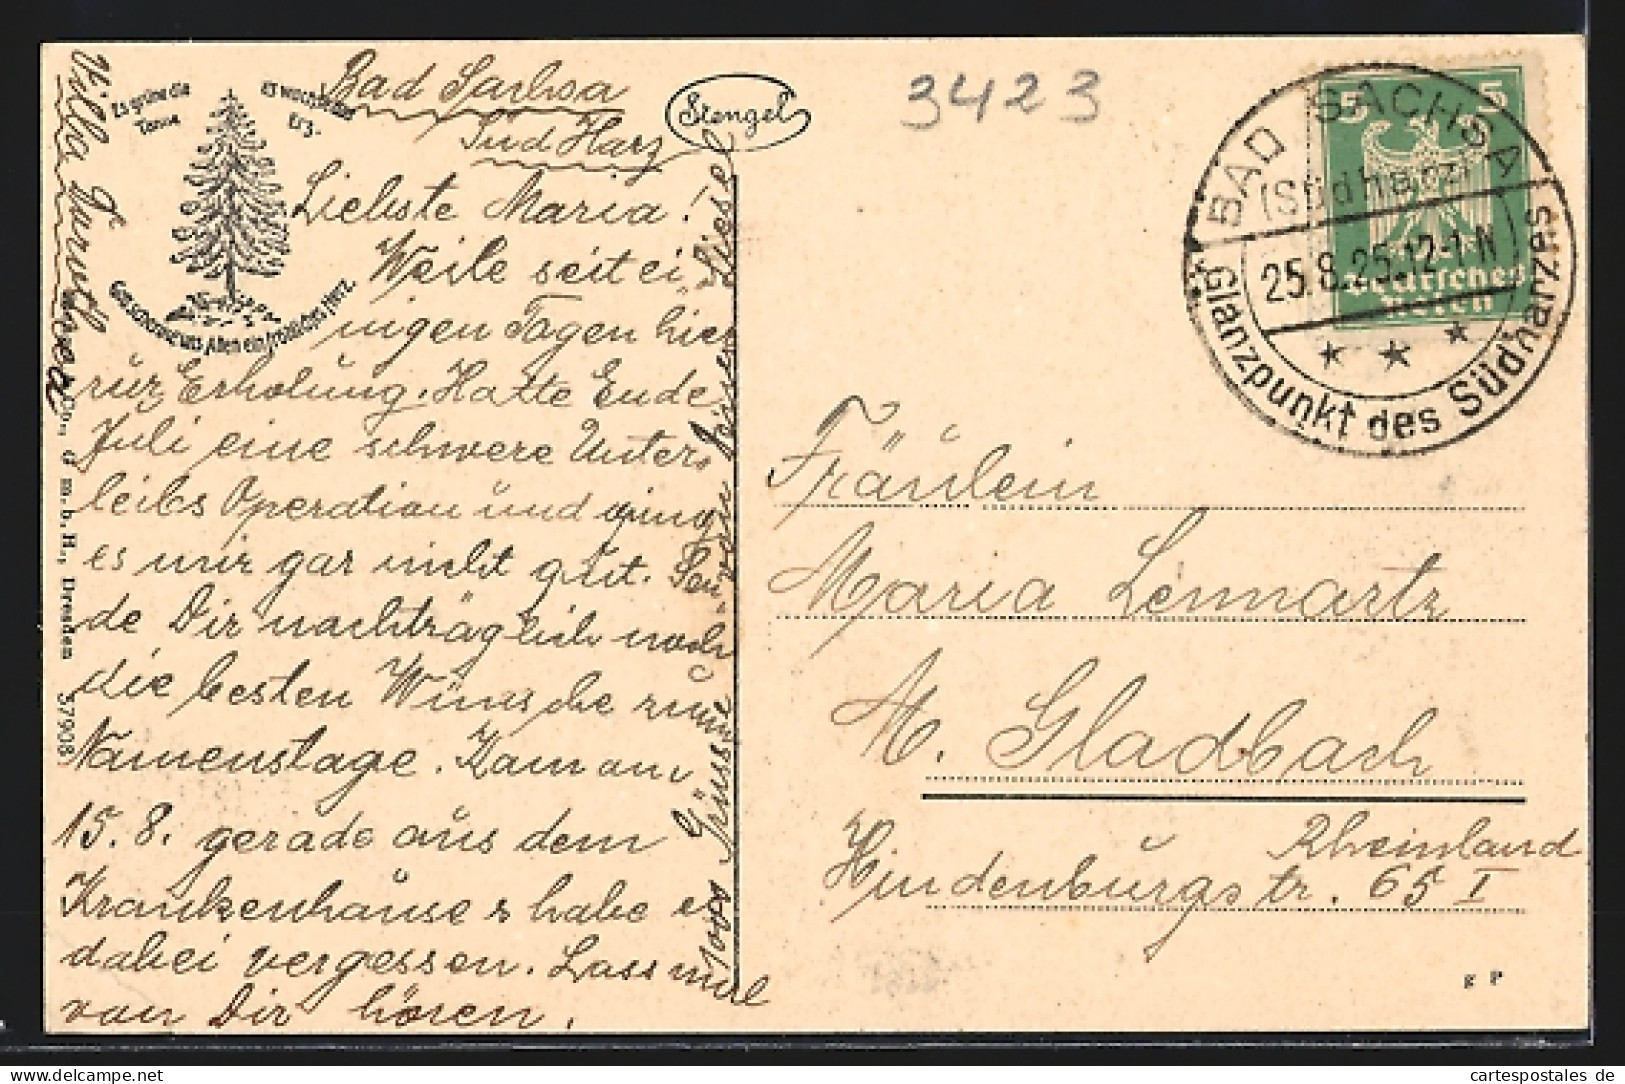 Bad Sachsa
Süd Harz
Villa Haruth
Es grüne die
Tanne
es wachse das
Erz.
Gott schenke uns Allen ein fröhliches Herz.
Stengel
3423
Liebste Maria!
Weile seit ei-
nigen Tagen hier
zur Erholung. Hatte Ende
Juli eine schwere Unter-
leibs Operation und ging
es mir gar nicht gut. Sen-
de Dir nachträglich noch
die besten Wünsche zum
Namenstage. Kam am
15.8. gerade aus dem
Krankenhause & habe es
dabei vergessen. Lass mal
von Dir hören.
Grüsse von Deiner Liesel
Co., G m. b. H., Dresden 57908
5 5
Deutsches
Reich
BAD SACHSA
(Südharz)
25.8.25.12-1 N
Glanzpunkt des Südharzes
Fräulein
Maria Lennartz
M. Gladbach
Rheinland
Hindenburgstr. 65 I
www.cartespostales.de
cartespostales de